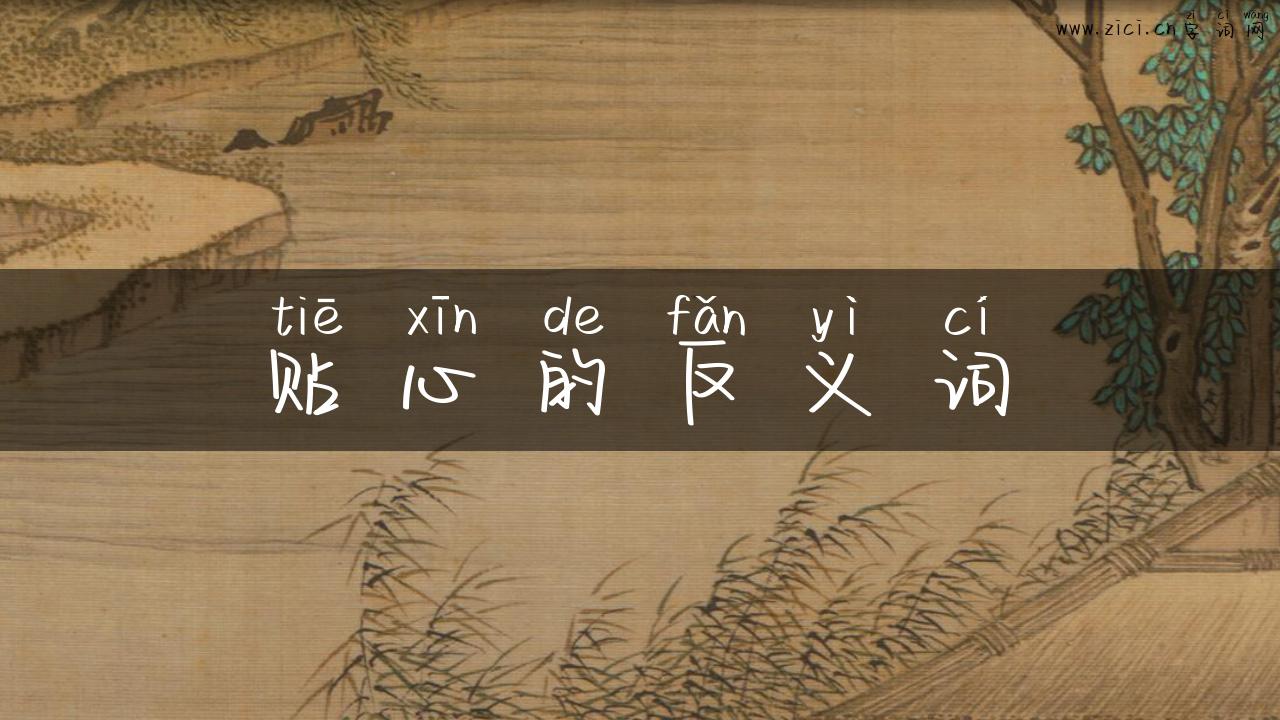 zì cí wǎng
www.zici.cn字词网
tiē xīn de fǎn yì cí
贴心的反义词